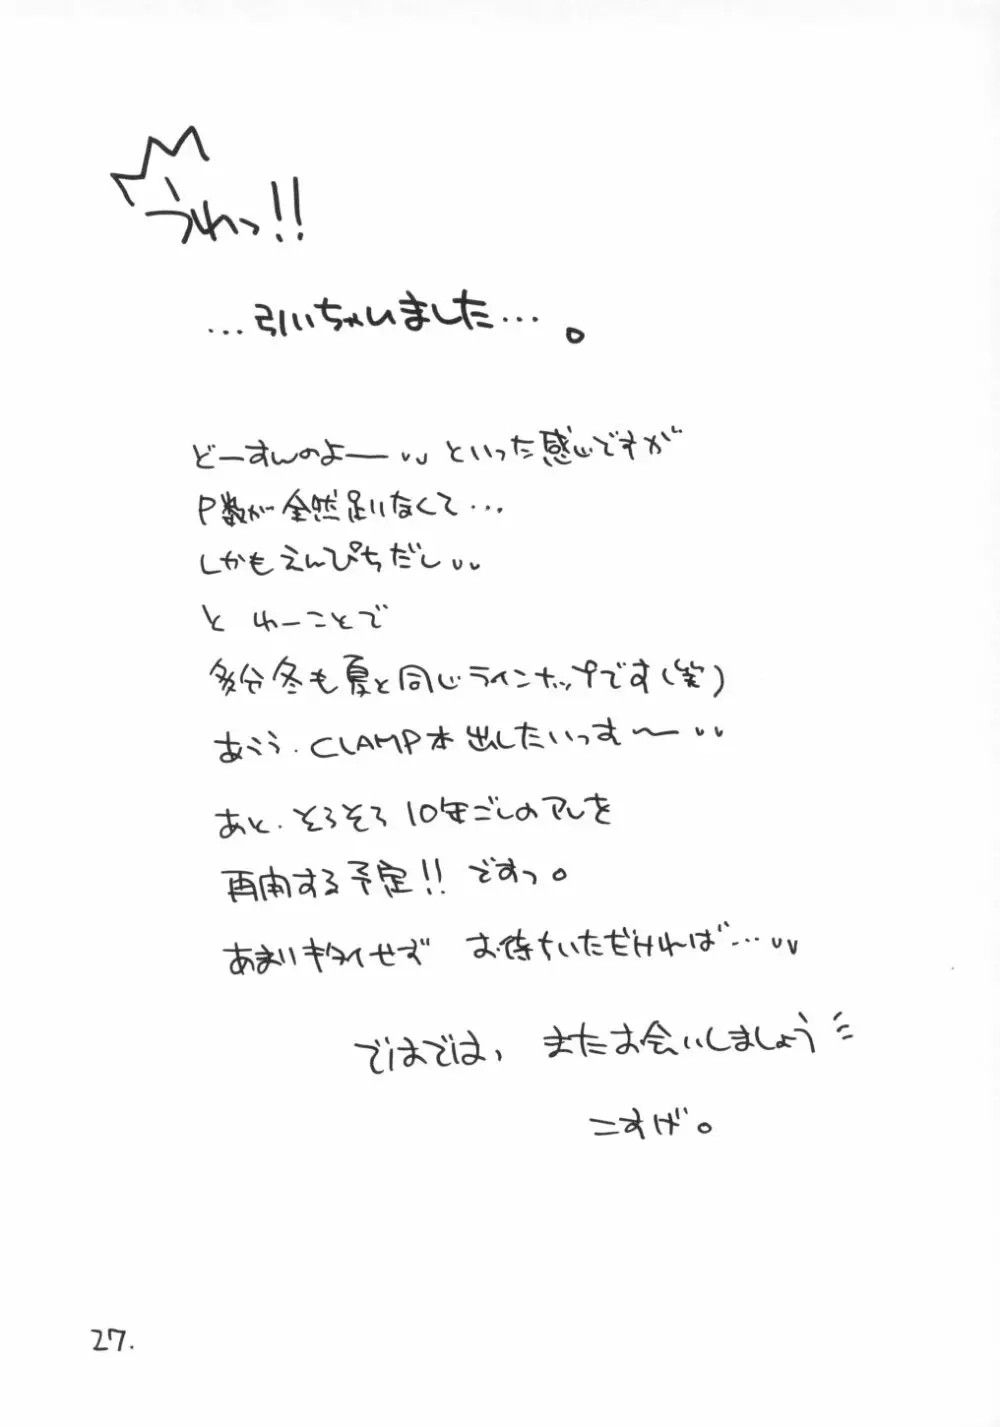 うわっ!!
…引いちゃいました…。
どーすんのよー といった感じですが
P数が全然足りなくて…
しかもえんぴちだし
と ゆーことで
多分冬も夏と同じラインナップです(笑)
あうう. CLAMP本出したいっす〜
あと. そろそろ10年ごしのアレを
再開する予定!! ですっ。
あまりキタイせず お待ちいただければ…
ではでは、またお会いしましょう
こすげ。
27.